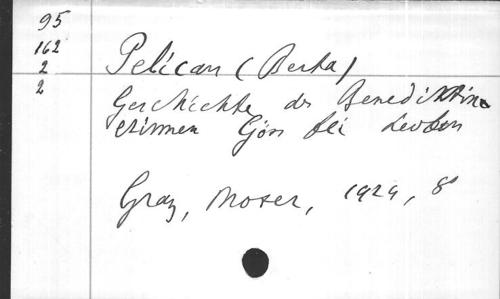 95
162
2
2
Pelican (Berta)
Geschichte der Benediktine
rinnen Göss bei Leoben
Graz, Moser, 1924, 8°